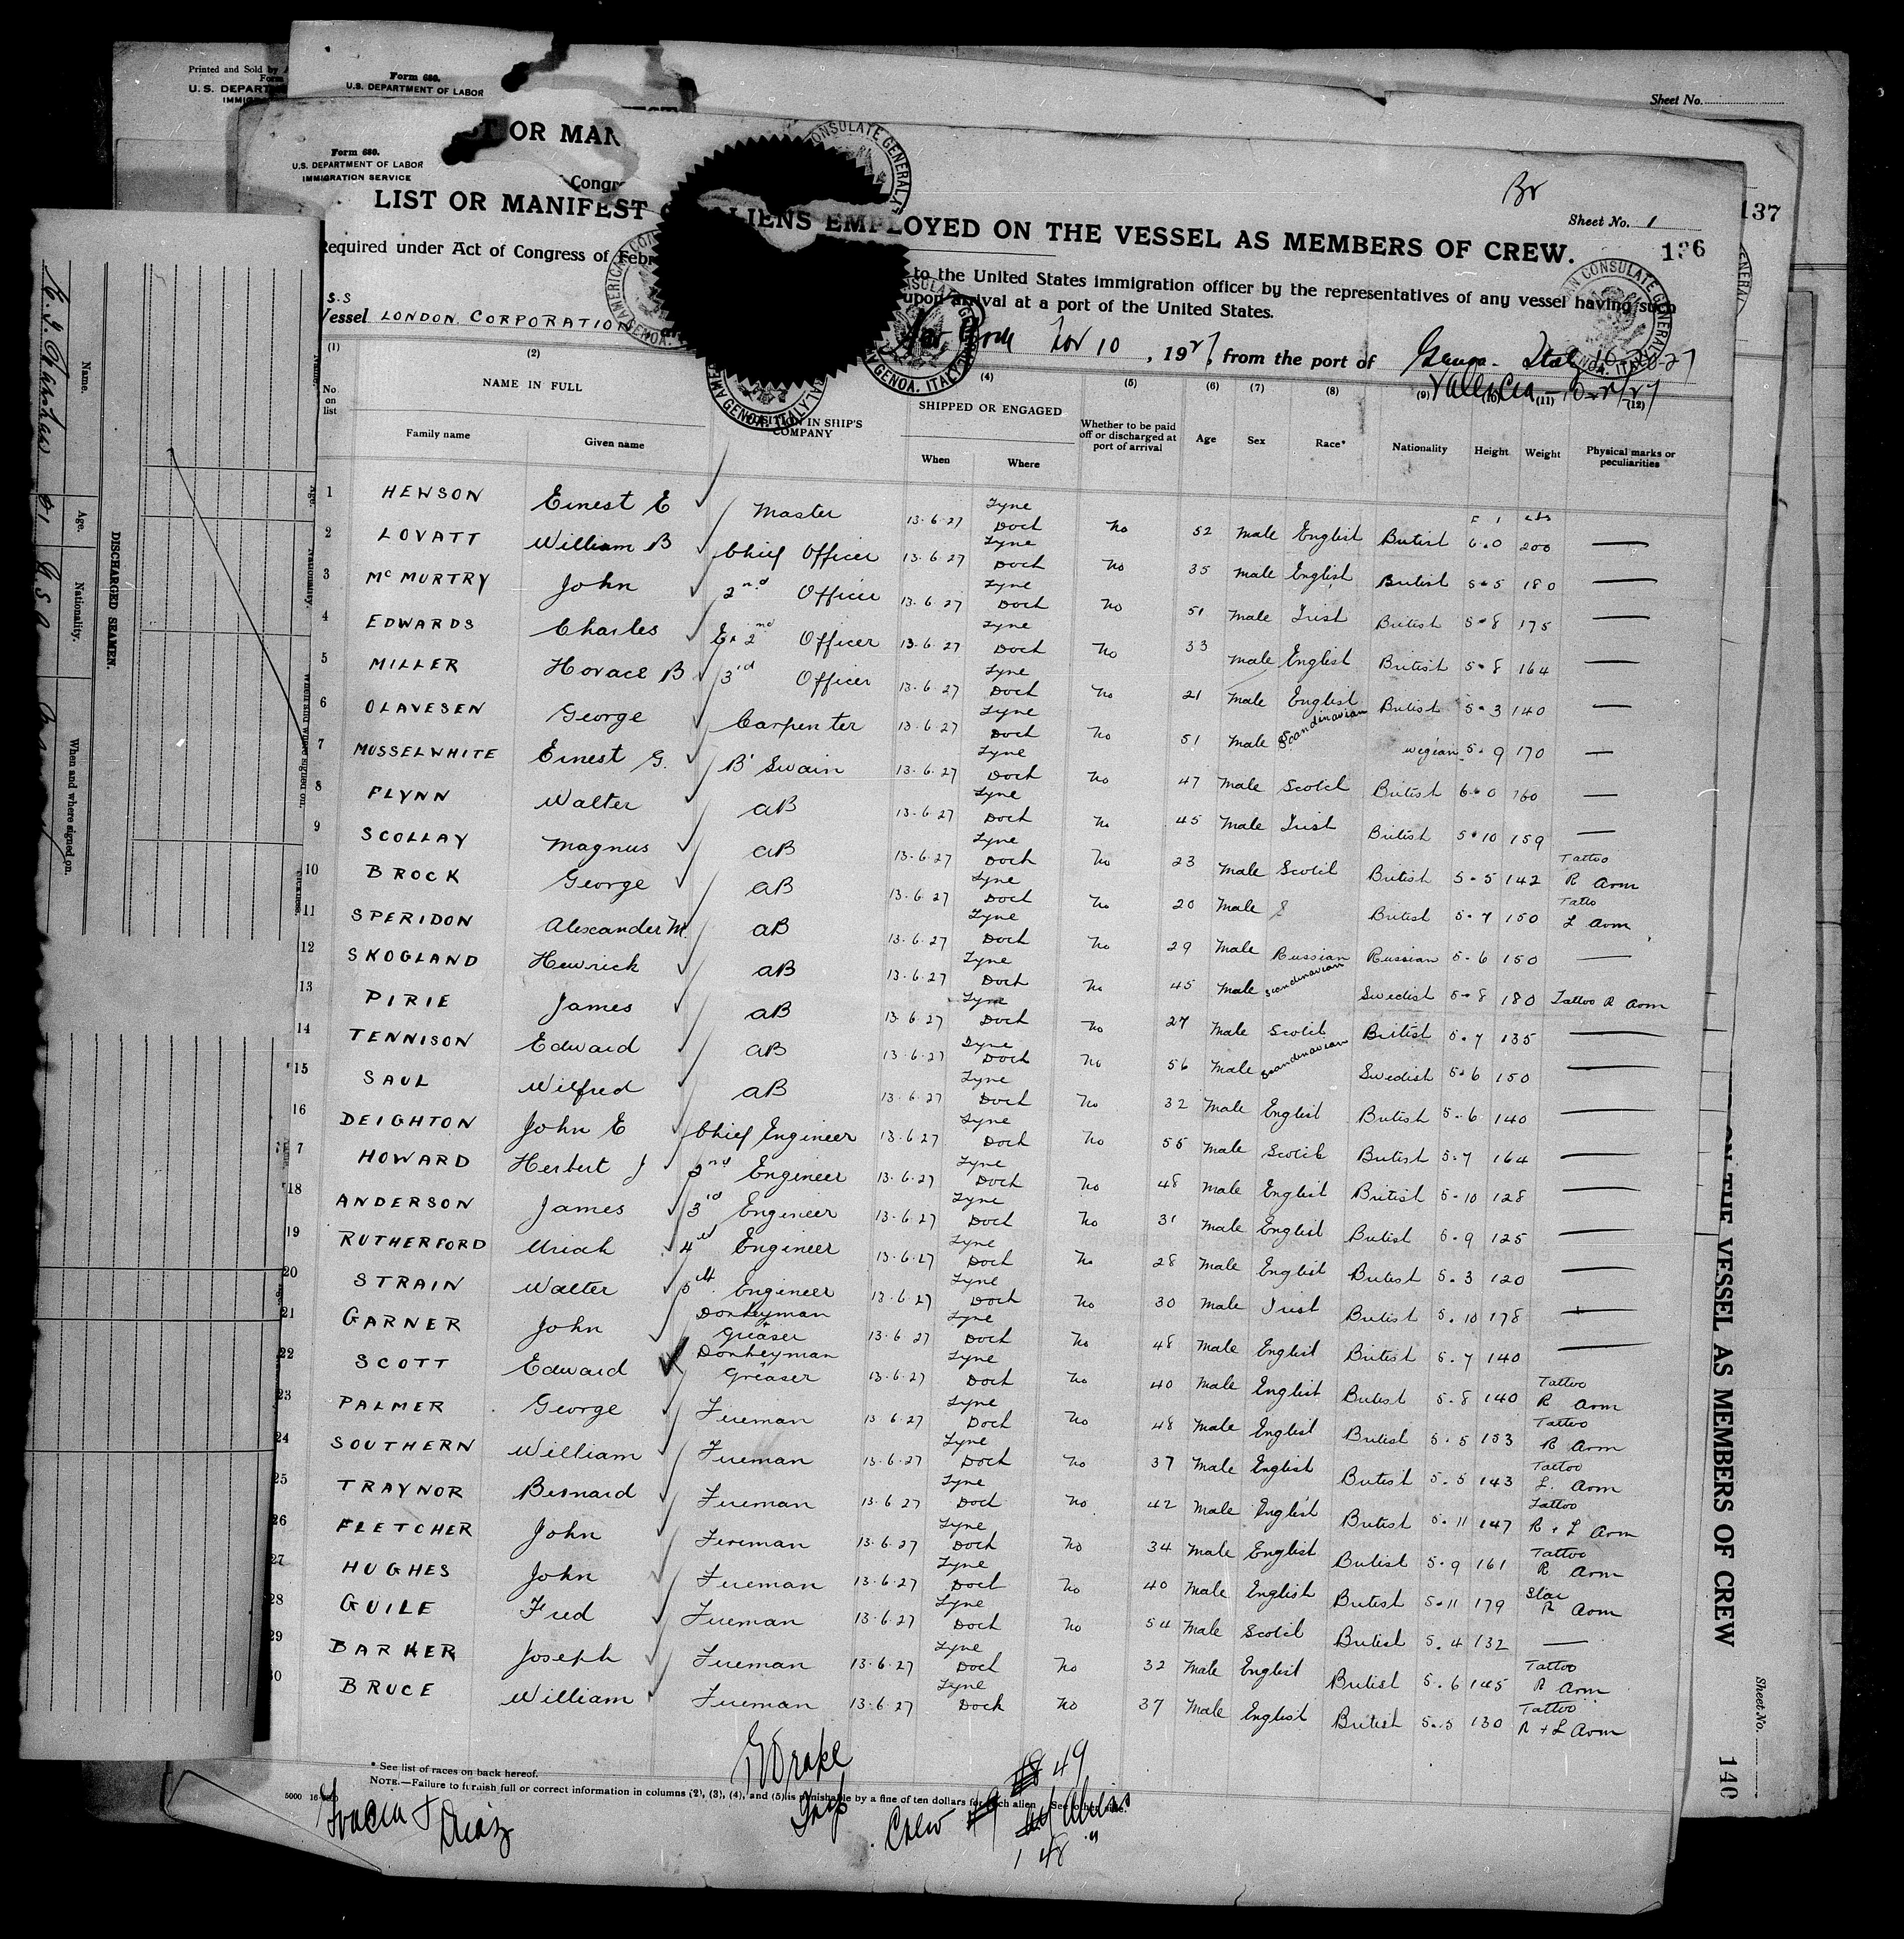 Printed and Sold by
Form
U.S. DEPARTM
IMMIGR
Form 680.
U.S. DEPARTMENT OF LABOR
Sheet No.
137
OR MAN
Form 680.
U.S. DEPARTMENT OF LABOR
IMMIGRATION SERVICE
Congr
Br
Sheet No. 1
136
LIST OR MANIFEST ALIENS EMPLOYED ON THE VESSEL AS MEMBERS OF CREW.
Required under Act of Congress of Febr to the United States immigration officer by the representatives of any vessel having such
upon arrival at a port of the United States.
S.S
Vessel LONDON CORPORATION Nov 10, 1927, from the port of Genoa. Italy
Valencia
(1) (2) (4) (5) (6) (7) (8) (9) (10) (11) (12)
No on list NAME IN FULL POSITION IN SHIP'S COMPANY SHIPPED OR ENGAGED Whether to be paid off or discharged at port of arrival Age Sex Race* Nationality Height Weight Physical marks or peculiarities
Family name Given name When Where
1 HEWSON Ernest E Master 13.6.27 Tyne Dock No 52 Male English British 6.0 200 —
2 LOVATT William B Chief Officer 13.6.27 Tyne Dock No 35 Male English British 5.5 180 —
3 McMURTRY John 2nd Officer 13.6.27 Tyne Dock No 51 Male Irish British 5.8 175 —
4 EDWARDS Charles Ex 2nd Officer 13.6.27 Tyne Dock No 33 Male English British 5.8 164 —
5 MILLER Horace B 3rd Officer 13.6.27 Tyne Dock No 21 Male English British 5.3 140 —
6 OLAVESEN George Carpenter 13.6.27 Tyne Dock No 51 Male Scandinavian wegian 5.9 170 —
7 MUSSELWHITE Ernest G. B'Swain 13.6.27 Tyne Dock No 47 Male Scotch British 6.0 160 —
8 FLYNN Walter AB 13.6.27 Tyne Dock No 45 Male Irish British 5.10 159 —
9 SCOLLAY Magnus AB 13.6.27 Tyne Dock No 23 Male Scotch British 5.5 142 Tattoo R Arm
10 BROCK George AB 13.6.27 Tyne Dock No 20 Male S British 5.7 150 Tatto L Arm
11 SPERIDON Alexander M. AB 13.6.27 Tyne Dock No 29 Male Russian Russian 5.6 150 —
12 SKOGLAND Hewrick AB 13.6.27 Tyne Dock No 45 Male Scandinavian Swedish 5.8 180 Tattoo R Arm
13 PIRIE James AB 13.6.27 Tyne Dock No 27 Male Scotch British 5.7 135 —
14 TENNISON Edward AB 13.6.27 Tyne Dock No 56 Male Scandinavian Swedish 5.6 150 —
15 SAUL Wilfred AB 13.6.27 Tyne Dock No 32 Male English British 5.6 140 —
16 DEIGHTON John E Chief Engineer 13.6.27 Tyne Dock No 55 Male Scotch British 5.7 164 —
7 HOWARD Herbert J 2nd Engineer 13.6.27 Tyne Dock No 48 Male English British 5.10 128 —
18 ANDERSON James 3rd Engineer 13.6.27 Tyne Dock No 31 Male English British 5.9 125 —
19 RUTHERFORD Uriah 4th Engineer 13.6.27 Tyne Dock No 28 Male English British 5.3 120 —
20 STRAIN Walter 5th Engineer 13.6.27 Tyne Dock No 30 Male Irish British 5.10 178 —
21 GARNER John Donkeyman + Greaser 13.6.27 Tyne Dock No 48 Male English British 5.7 140 —
22 SCOTT Edward Donkeyman + Greaser 13.6.27 Tyne Dock No 40 Male English British 5.8 140 Tattoo R Arm
23 PALMER George Fireman 13.6.27 Tyne Dock No 48 Male English British 5.5 153 Tattoo R Arm
24 SOUTHERN William Fireman 13.6.27 Tyne Dock No 37 Male English British 5.5 143 Tattoo L. Arm
25 TRAYNOR Bernard Fireman 13.6.27 Tyne Dock No 42 Male English British 5.11 147 Tattoo R + L Arm
26 FLETCHER John Fireman 13.6.27 Tyne Dock No 34 Male English British 5.9 161 Tattoo R Arm
27 HUGHES John Fireman 13.6.27 Tyne Dock No 40 Male English British 5.11 179 Star R Arm
28 GUILE Fred Fireman 13.6.27 Tyne Dock No 54 Male Scotch British 5.4 132 —
29 BARKER Joseph Fireman 13.6.27 Tyne Dock No 32 Male English British 5.6 145 Tattoo R Arm
30 BRUCE William Fireman 13.6.27 Tyne Dock No 37 Male English British 5.5 130 Tattoo R + L Arm
* See list of races on back hereof.
NOTE.—Failure to furnish full or correct information in columns (2), (3), (4), and (5) is punishable by a fine of ten dollars for each alien. See other side.
Drake
Insp
Crew 49
Aliens
1 48 "
Diaz
AMERICAN CONSULATE GENERAL
GENOA. ITALY
DISCHARGED SEAMEN.
Name.
Age.
Nationality.
When and where signed on.
ON THE VESSEL AS MEMBERS OF CREW
Sheet No.
140